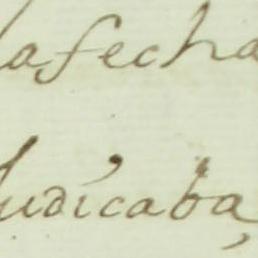 a fecha
Judicaba,